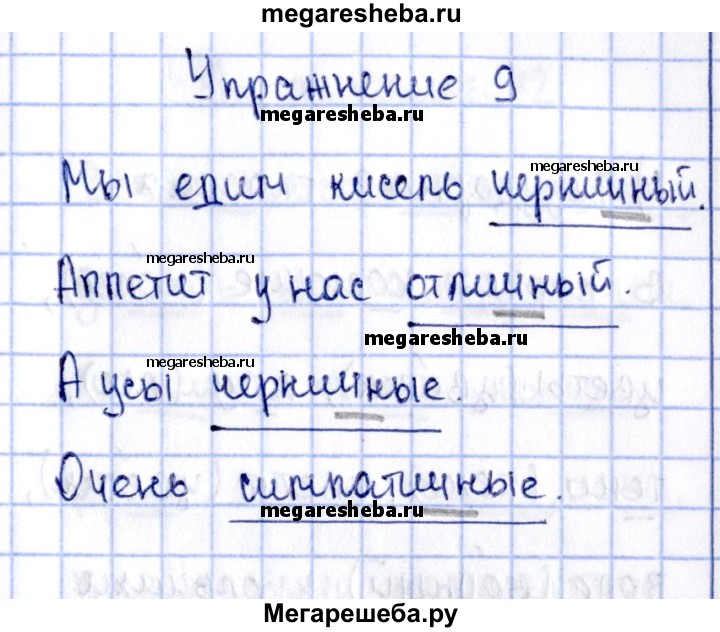 megaresheba.ru
Упражнение 9
megaresheba.ru
megaresheba.ru
Мы едим кисель черничный.
megaresheba.ru
Аппетит у нас отличный.
megaresheba.ru
megaresheba.ru
А усы черничные.
Очень симпатичные.
megaresheba.ru
Мегарешеба.ру